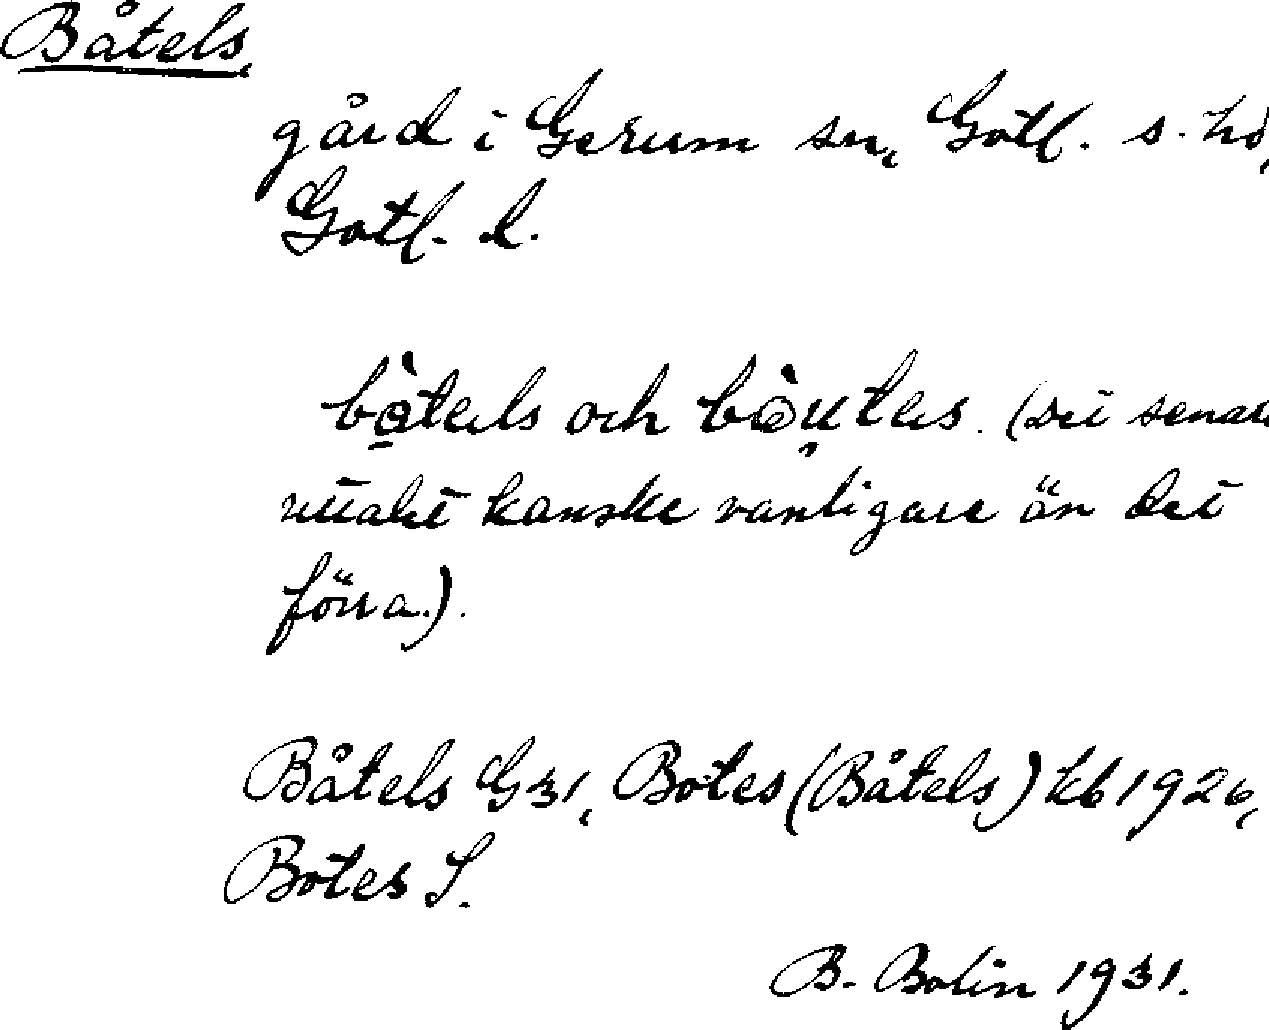 Båtels,
gård i Gerum sn, Gotl. s. hd,
Gotl. l.
bò̱tels och bòu̯tes. (det senare
uttalet kanske vanligare än det
förra.).
Båtels G31, Botes (Båtels) kb 1926,
Botes S.
B. Bolin 1931.